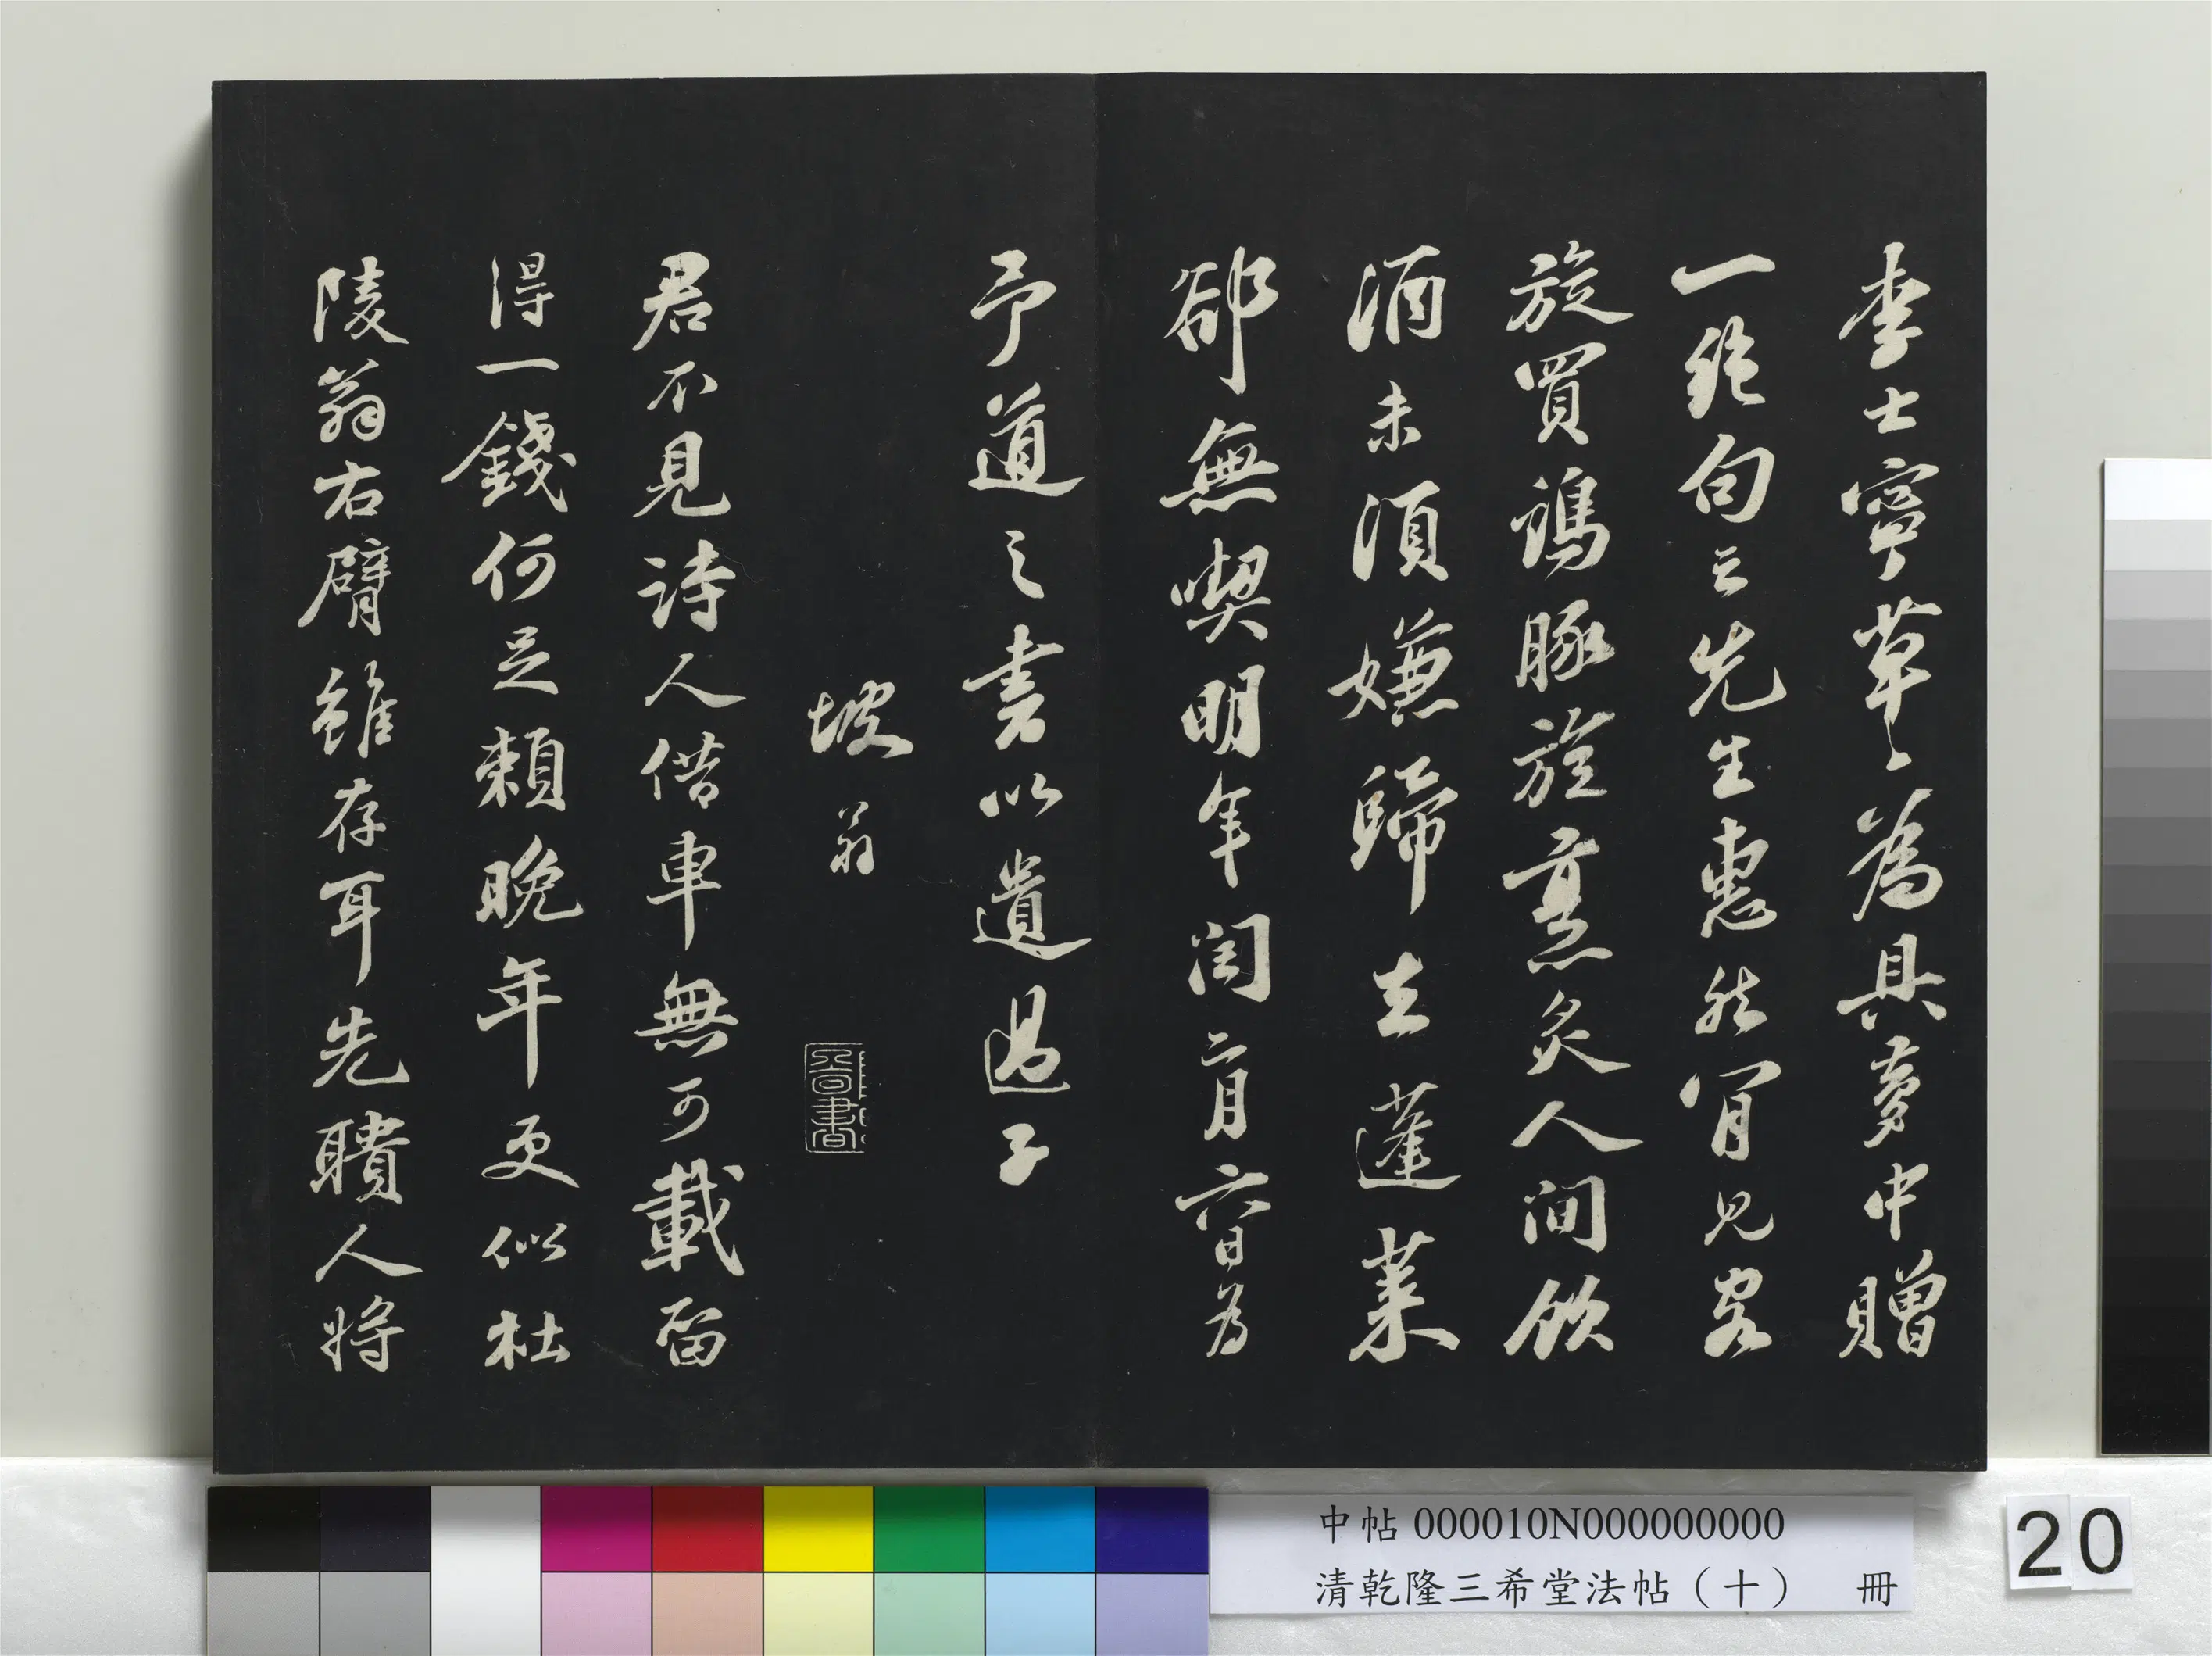 李士寧草草為具夢中贈
一絕句云先生惠然肯見客
旋買鷄豚旋烹炙人間飲
酒未須嫌歸去蓬萊
郤無喫明年閏二月六日為
予道之書以遺過子
坡翁
君不見詩人借車無可載留
得一錢何足賴晚年更似杜
陵翁右臂雖存耳先聵人將
中帖 000010N000000000
清乾隆三希堂法帖（十） 冊
20